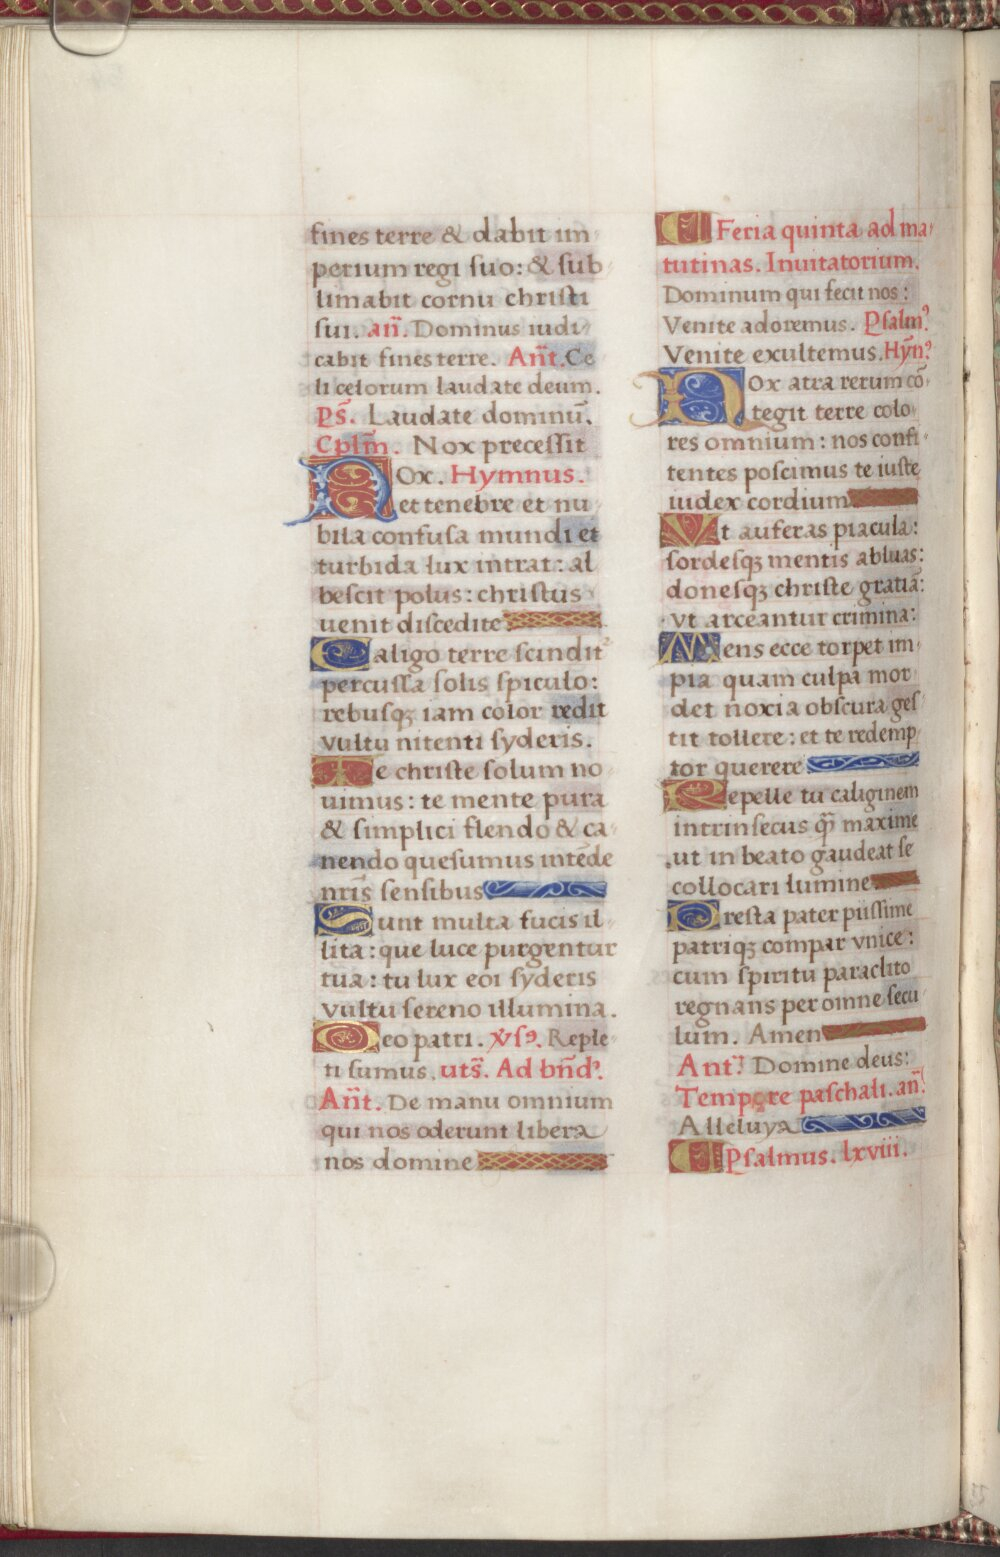 fines terre & dabit im
perium regi suo: & sub
limabit cornu christi
sui. añ. Dominus iudi
cabit fines terre. Añt. Ce
li celorum laudate deum.
Ps̃. Laudate dominũ.
Cplm̃. Nox precessit
NOx. Hymnus.
et tenebre et nu
bila confusa mundi et
turbida lux intrat: al
bescit polus: christus
uenit discedite
Caligo terre scindit᷑
percussa solis spiculo:
rebusqꝫ iam color redit
vultu nitenti syderis.
Te christe solum no
uimus: te mente pura
& simplici flendo & ca
nendo quesumus intẽde
nr̃is sensibus
Sunt multa fucis il
lita: que luce purgentur
tua: tu lux eoi syderis
vultu sereno illumina.
Deo patri. v̾sꝰ. Reple
ti sumus. uts̃. Ad bñdꝰ.
Añt. De manu omnium
qui nos oderunt libera
nos domine
¶ Feria quinta ad ma
tutinas. Inuitatorium.
Dominum qui fecit nos:
Venite adoremus. Psalmꝰ.
Venite exultemus. Hỹnꝰ.
NOx atra rerum cõ
tegit terre colo
res omnium: nos confi
tentes poscimus te iuste
iudex cordium
Vt auferas piacula:
sordesqꝫ mentis abluas:
donesqꝫ christe gratiã:
vt arceantur crimina:
Mens ecce torpet im
pia quam culpa mor
det noxia obscura ges
tit tollere: et te redemp
tor querere
Repelle tu caliginem
intrinsecus qm̃ maxime
ut in beato gaudeat se
collocari lumine
Presta pater piissime
patriqꝫ compar vnice:
cum spiritu paraclito
regnans per omne secu
lum. Amen
Antꝰ. Domine deus:
Tempore paschali. añ.
Alleluya
¶ Psalmus. lxviii.